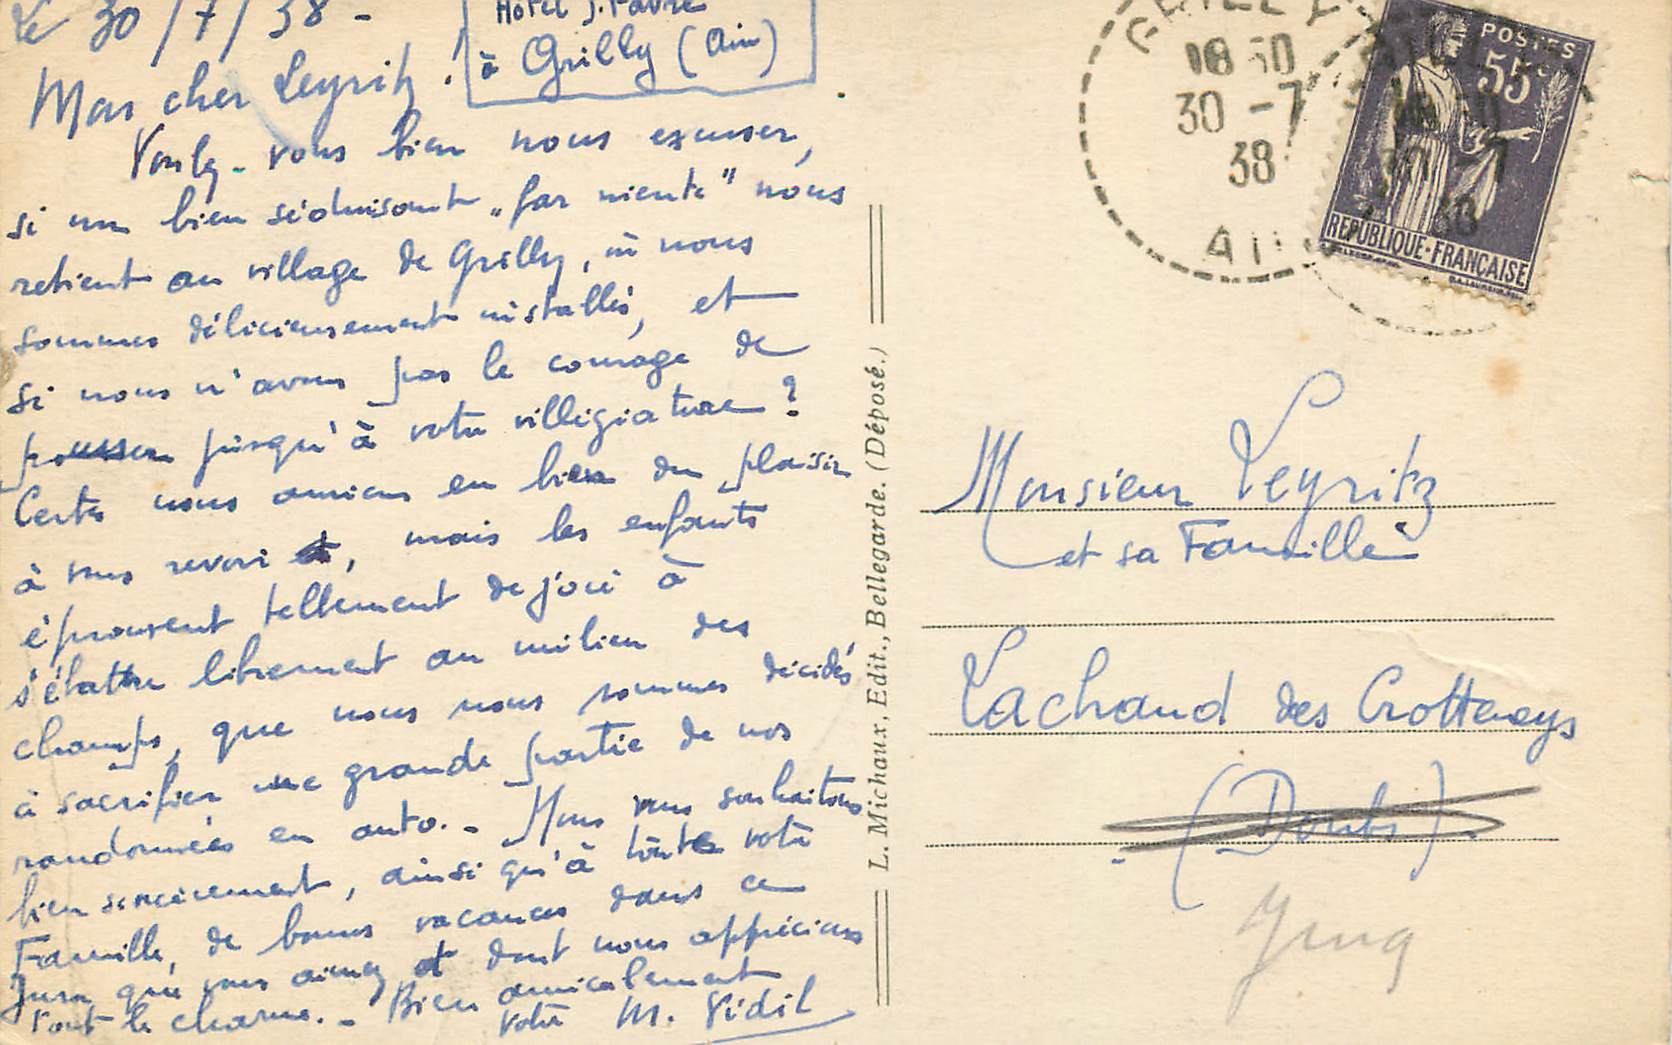 le 30/7/38 -
Hôtel J. Favre
à Grilly (Ain)
Mon cher Leyritz !
Voulez-vous bien nous excuser,
si un bien séduisant „far niente" nous
retient au village de Grilly, où nous
sommes délicieusement installés, et
si nous n'avons pas le courage de
pousser jusqu'à votre villégiature ?
Certes nous aurions eu bien du plaisir
à vous revoir, mais les enfants
éprouvent tellement de joie à
s'ébattre librement au milieu des
champs, que nous nous sommes décidés
à sacrifier une grande partie de nos
randonnées en auto. - Nous vous souhaitons
bien sincèrement, ainsi qu'à toute votre
Famille, de bonnes vacances dans ce
Jura que vous aimez et dont nous apprécions
tout le charme. - Bien amicalement
votre M. Vidil
L. Michaux, Edit., Bellegarde. (Déposé.)
GRILLY
18 50
30 -7
38
AIN
POSTES
55c
REPUBLIQUE·FRANÇAISE
Monsieur Leyritz
et sa Famille
Lachaud des Crottenays
(Doubs)
Jura